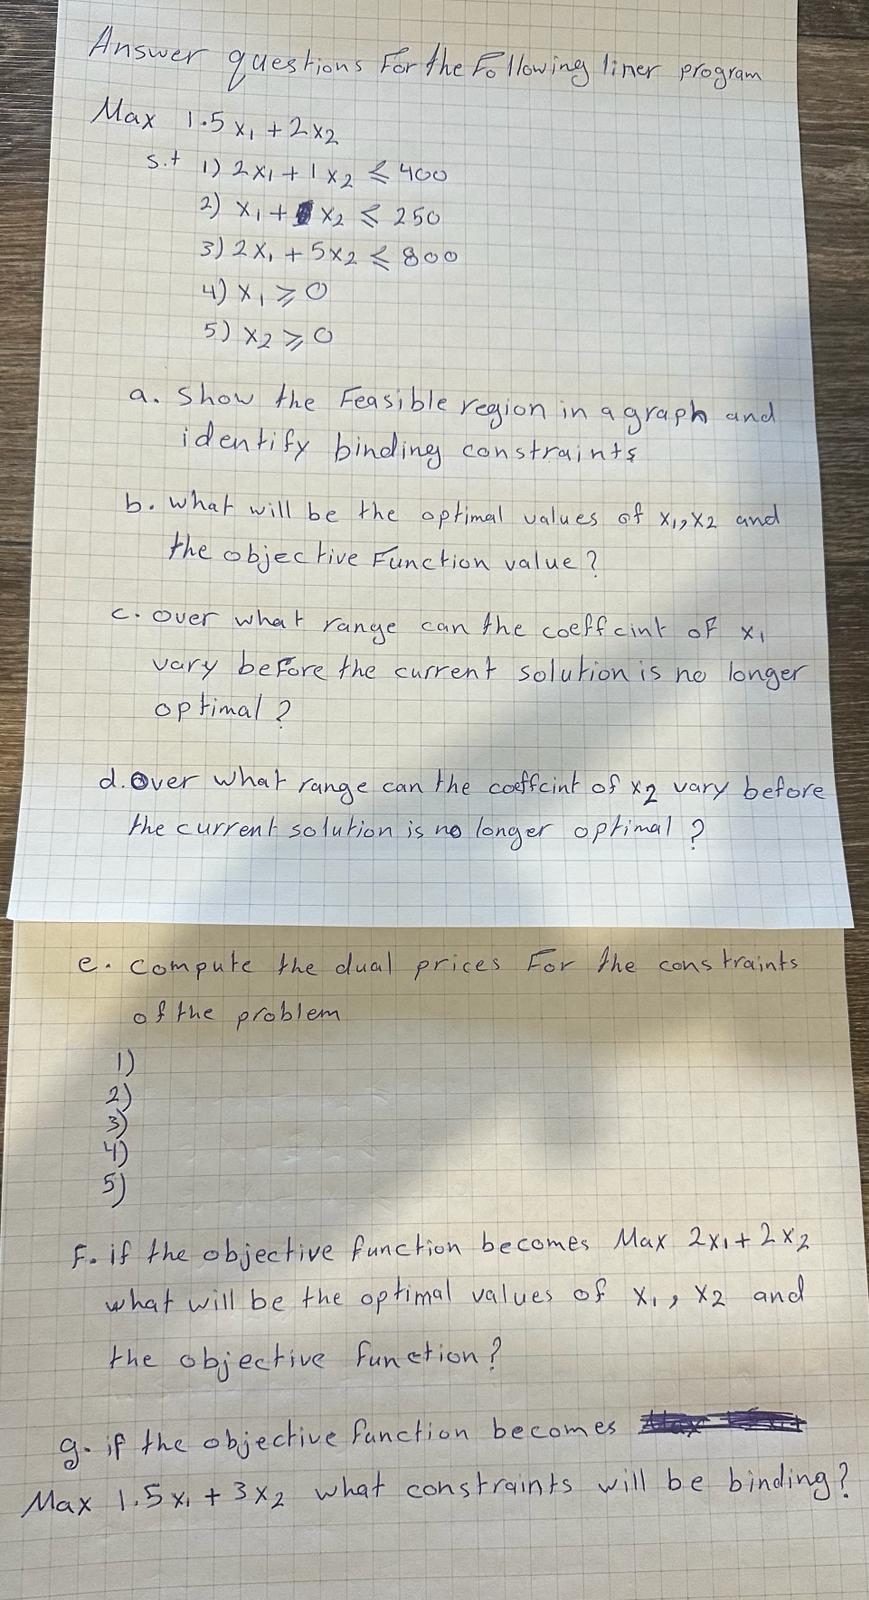 Answer questions For the Following liner program
Max 1.5x₁ + 2x₂
s.t 1) 2x₁ + 1x₂ ≤ 400
2) x₁ + x₂ ≤ 250
3) 2x₁ + 5x₂ ≤ 800
4) x₁ ≥ 0
5) x₂ ≥ 0
a. Show the Feasible region in a graph and
identify binding constraints
b. what will be the optimal values of x₁, x₂ and
the objective Function value?
c. over what range can the coeffcint of x₁
vary before the current solution is no longer
optimal?
d. Over what range can the coeffcint of x₂ vary before
the current solution is no longer optimal?
e. compute the dual prices For the constraints
of the problem
1)
2)
3)
4)
5)
F. if the objective function becomes Max 2x₁ + 2x₂
what will be the optimal values of x₁, x₂ and
the objective function?
g. if the objective function becomes
Max 1.5x₁ + 3x₂ what constraints will be binding?